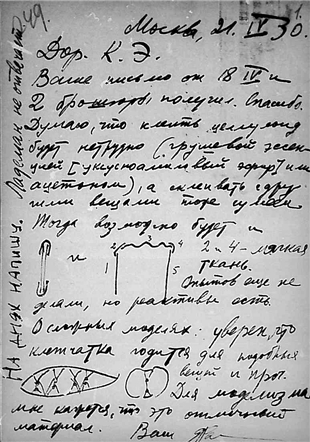 Москва, 21. IV 30.
Дор. К. Э.
Ваше письмо от 18 IV и
2 брошюры получил. Спасибо.
Думаю, что клеить целлулоид
будет нетрудно (грушевой эссен-
цией [уксусноамиловый эфир] или
ацетоном), а склеивать с дру-
гими вещами тоже сумеем.
Тогда возможно будет и
и
1
2
3
4
5
2-4-мягкая
ткань.
Опытов еще не
делали, но реактивы есть.
О сложных моделях: уверен, что
клетчатка годится для подобных
вещей и проч.
Для моделей
мне кажется, что это отличный
материал. Ваш
На днях напишу. Ладеман не ответил.